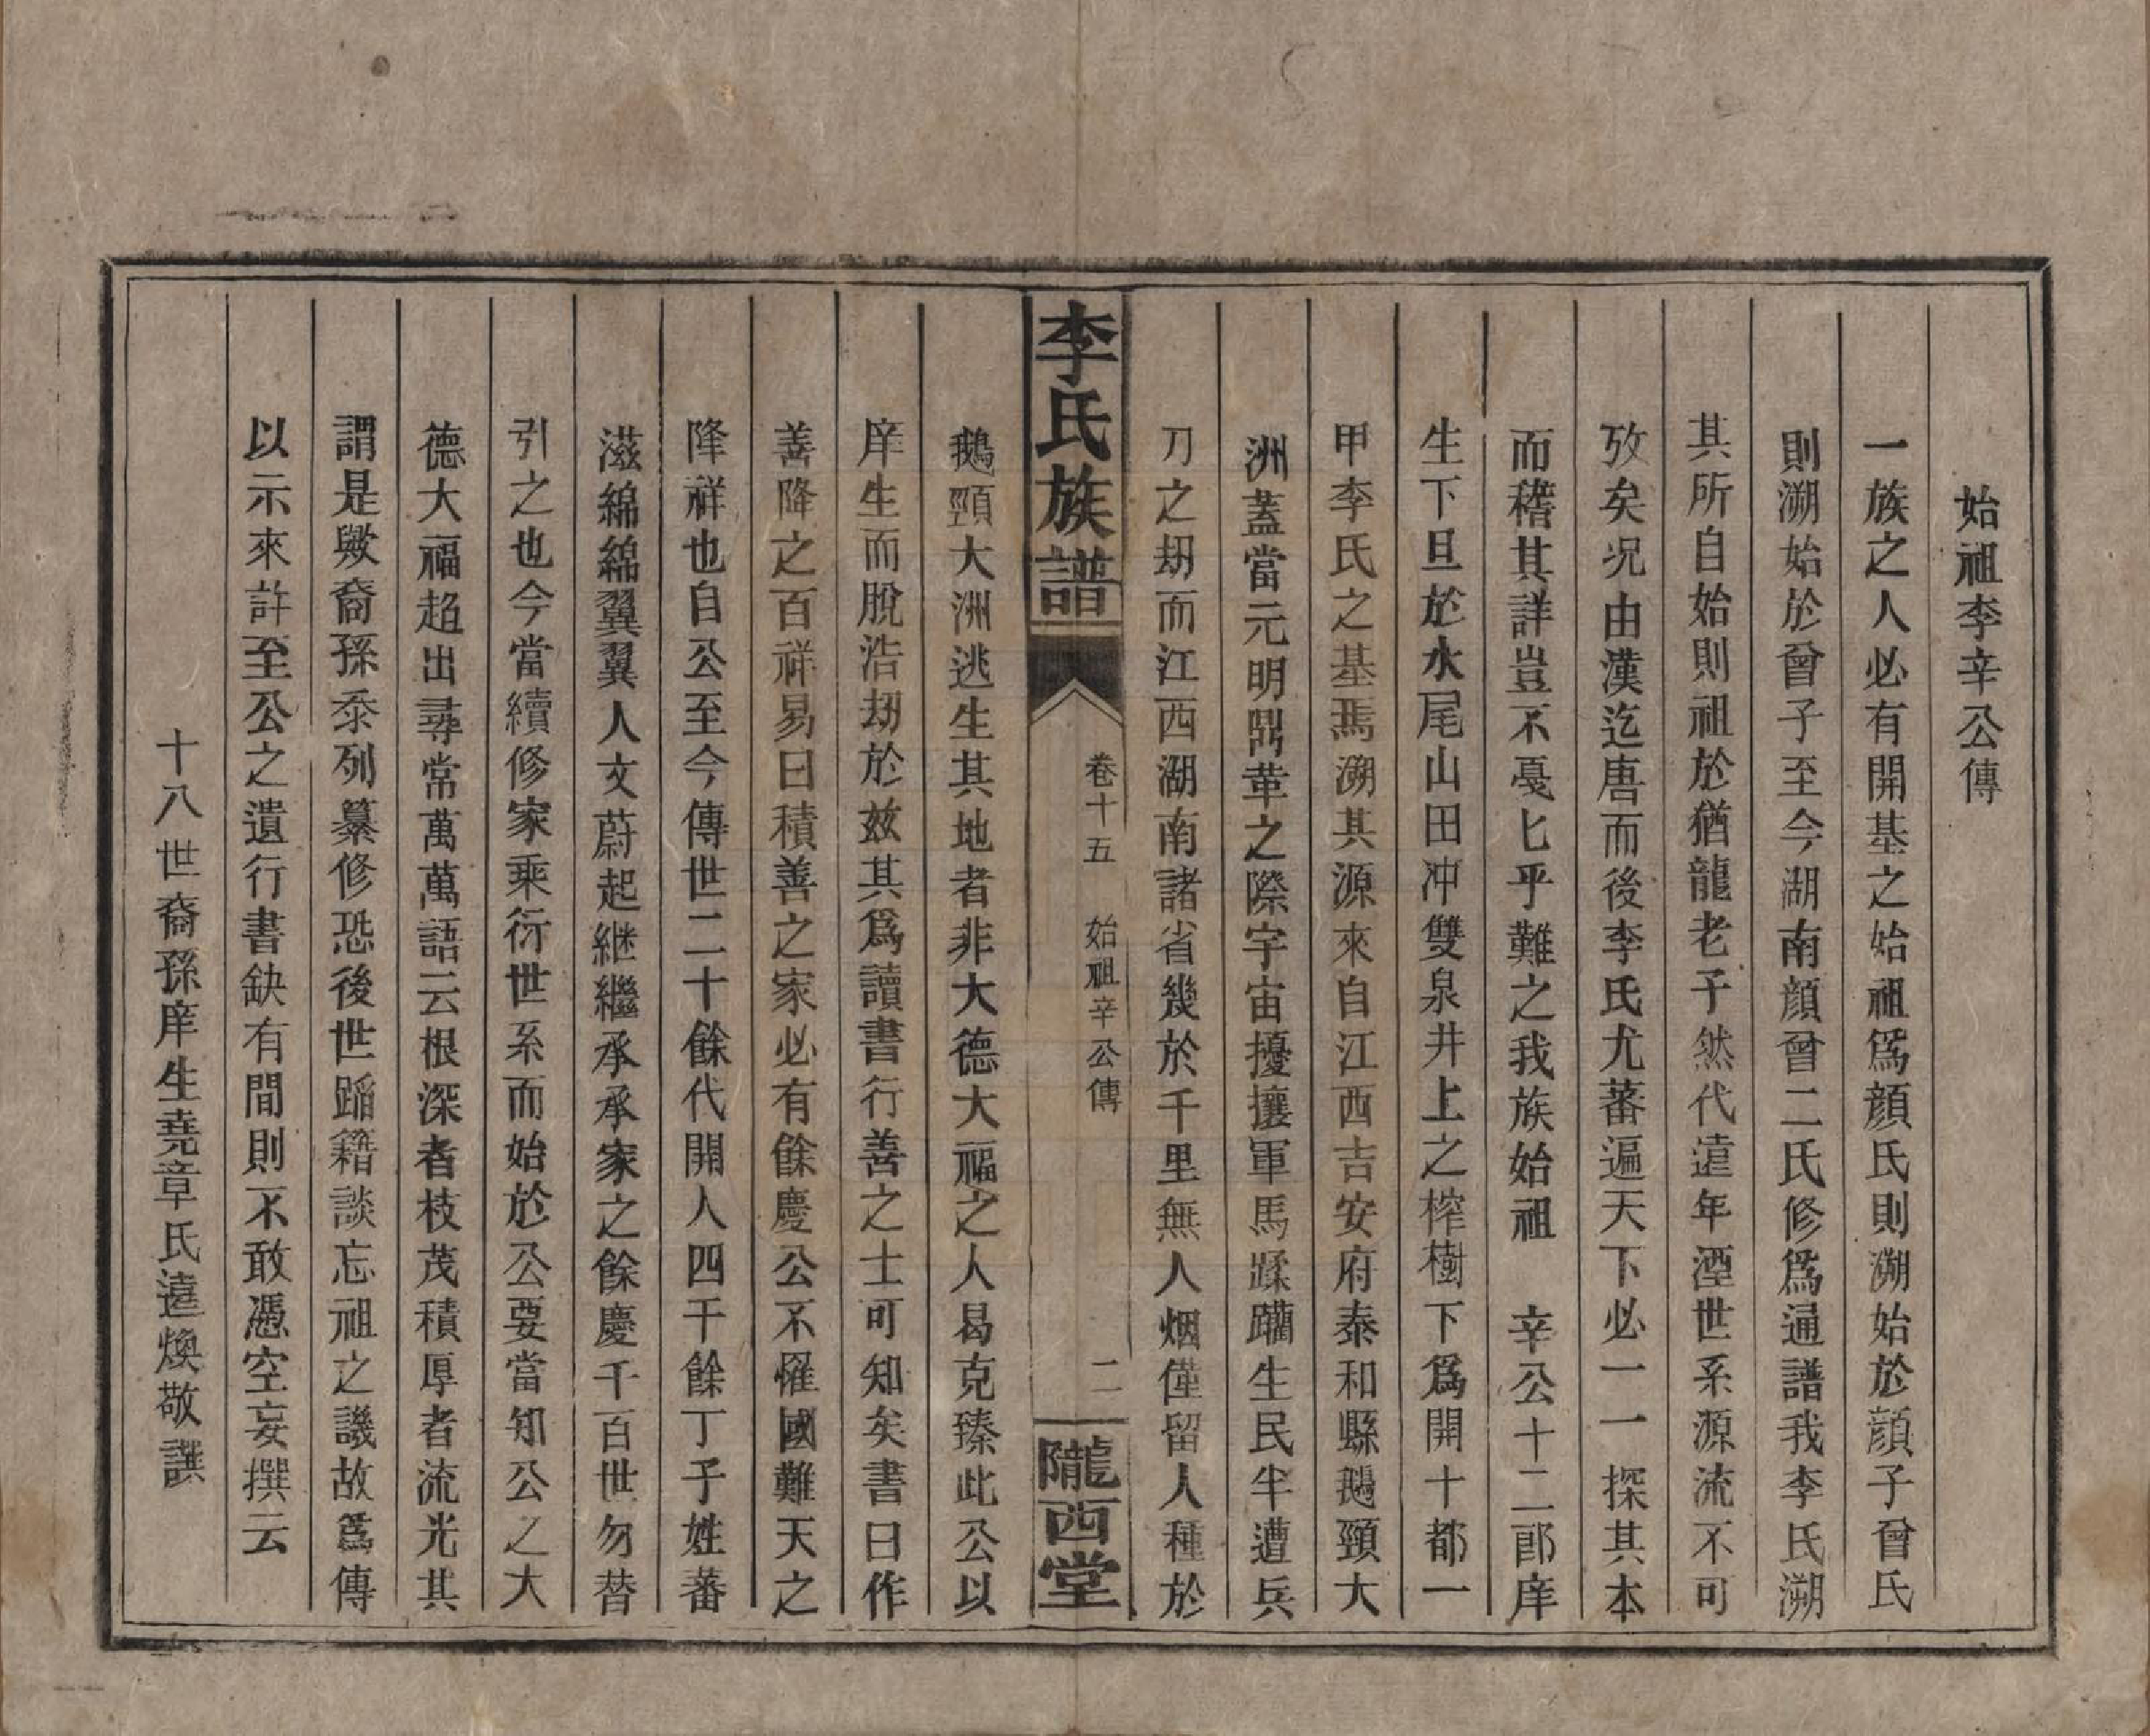 始祖李辛公傳
一族之人必有開基之始祖爲顔氏則溯始於顔子曾氏
則溯始於曾子至今湖南顔曾二氏修爲通譜我李氏溯
其所自始則祖於猶龍老子然代遠年湮世系源流不可
攷矣況由漢迄唐而後李氏尤蕃遍天下必一一探其本
而稽其詳豈不戞匕乎難之我族始祖 辛公十二郎庠
生下旦於水尾山田冲雙泉井上之榨樹下爲開十都一
甲李氏之基焉溯其源來自江西吉安府泰和縣鵝頸大
洲蓋當元明鼎革之際宇宙擾攘軍馬蹂躪生民半遭兵
刀之刼而江西湖南諸省幾於千里無人烟僅留人種於
李氏族譜 卷十五 始祖辛公傳 二 隴西堂
鵝頸大洲逃生其地者非大德大福之人曷克臻此公以
庠生而脫浩刼於茲其爲讀書行善之士可知矣書曰作
善降之百祥易曰積善之家必有餘慶公不罹國難天之
降祥也自公至今傳世二十餘代開人四千餘丁子姓蕃
滋綿綿翼翼人文蔚起継繼承承家之餘慶千百世勿替
引之也今當續修家乘衍世系而始於公要當知公之大
德大福超出尋常萬萬語云根深者枝茂積厚者流光其
謂是歟裔孫忝列纂修恐後世蹈籍談忘祖之譏故爲傳
以示來許至公之遺行書缺有間則不敢憑空妄撰云
十八世裔孫庠生堯章氏遠煥敬譔